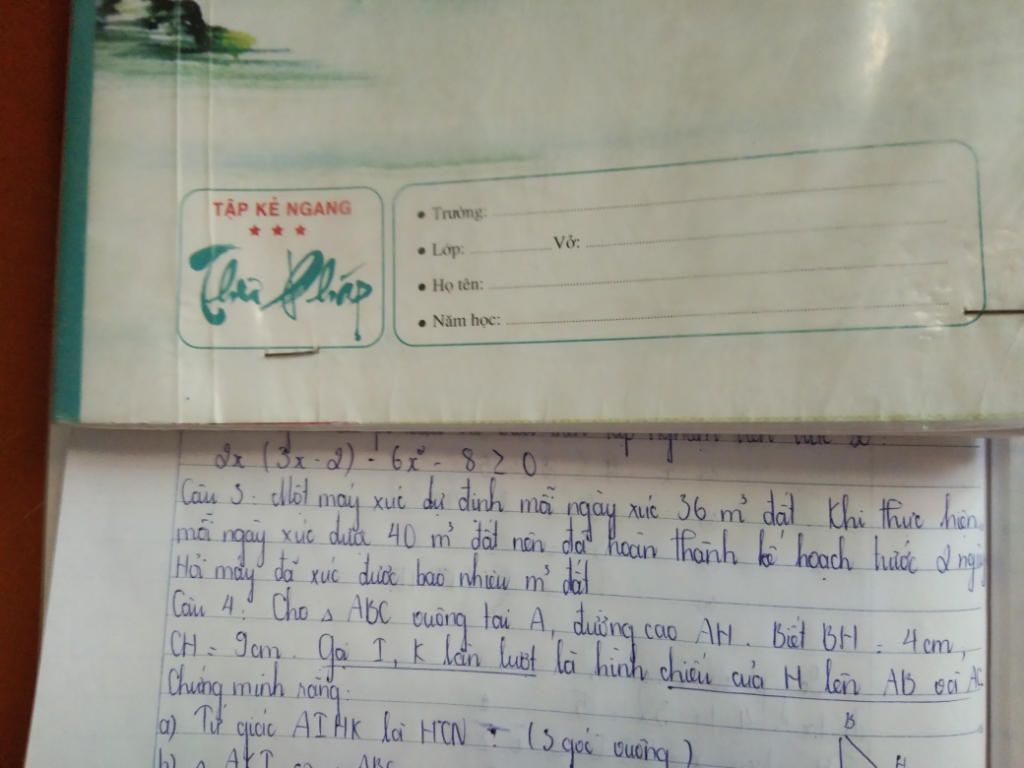 TẬP KẺ NGANG
Thư Pháp
• Trường:
• Lớp: Vở:
• Họ tên:
• Năm học:
2x (3x - 2) - 6x² - 8 ≥ 0
Câu 3: Một máy xúc dự định mỗi ngày xúc 36 m³ đất Khi thực hiện
mỗi ngày xúc được 40 m³ đất nên đã hoàn thành kế hoạch trước 2 ngày
Hỏi máy đã xúc được bao nhiêu m³ đất
Câu 4: Cho △ ABC vuông tại A, đường cao AH. Biết BH = 4cm,
CH = 9cm. Gọi I, K lần lượt là hình chiếu của H lên AB và AC
Chứng minh rằng:
a) Tứ giác AIHK là HCN (3 góc vuông)
B
H
b) △ AKI ABC